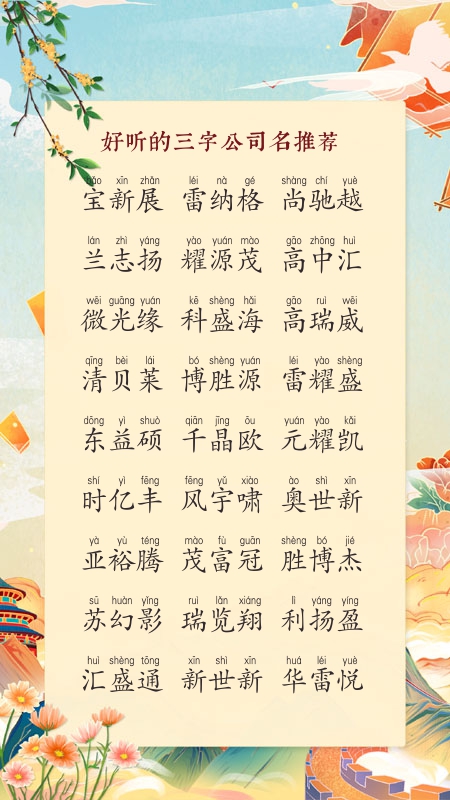 好听的三字公司名推荐
bǎo xīn zhǎn léi nà gé shàng chí yuè
宝新展 雷纳格 尚驰越
lán zhì yáng yào yuán mào gāo zhōng huì
兰志扬 耀源茂 高中汇
wēi guāng yuán kē shèng hǎi gāo ruì wēi
微光缘 科盛海 高瑞威
qīng bèi lái bó shèng yuán léi yào shèng
清贝莱 博胜源 雷耀盛
dōng yì shuò qiān jīng ōu yuán yào kǎi
东益硕 千晶欧 元耀凯
shí yì fēng fēng yǔ xiào ào shì xīn
时亿丰 风宇啸 奥世新
yà yù téng mào fù guān shèng bó jié
亚裕腾 茂富冠 胜博杰
sū huàn yǐng ruì lǎn xiáng lì yáng yíng
苏幻影 瑞览翔 利扬盈
huì shèng tōng xīn shì xīn huá léi yuè
汇盛通 新世新 华雷悦